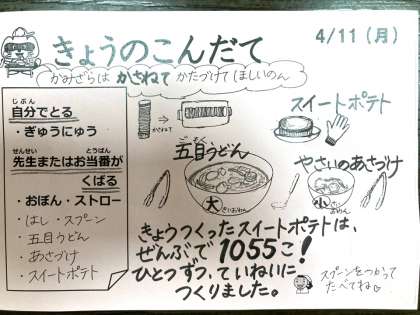 きょうのこんだて
4/11(月)
かみざらは かさねて かたづけて ほしいのん
自分でとる
じぶん
・ぎゅうにゅう
せんせい とうばん
先生またはお当番が
くばる
・おぼん・ストロー
・はし・スプーン
・五目うどん
・あさづけ
・スイートポテト
かさねて
スイートポテト
五目うどん
大
やさいのあさづけ
小
きょうつくったスイートポテトは、
ぜんぶで1055こ!
ひとつずつ、ていねいに
つくりました。
スプーンをつかって
たべてね